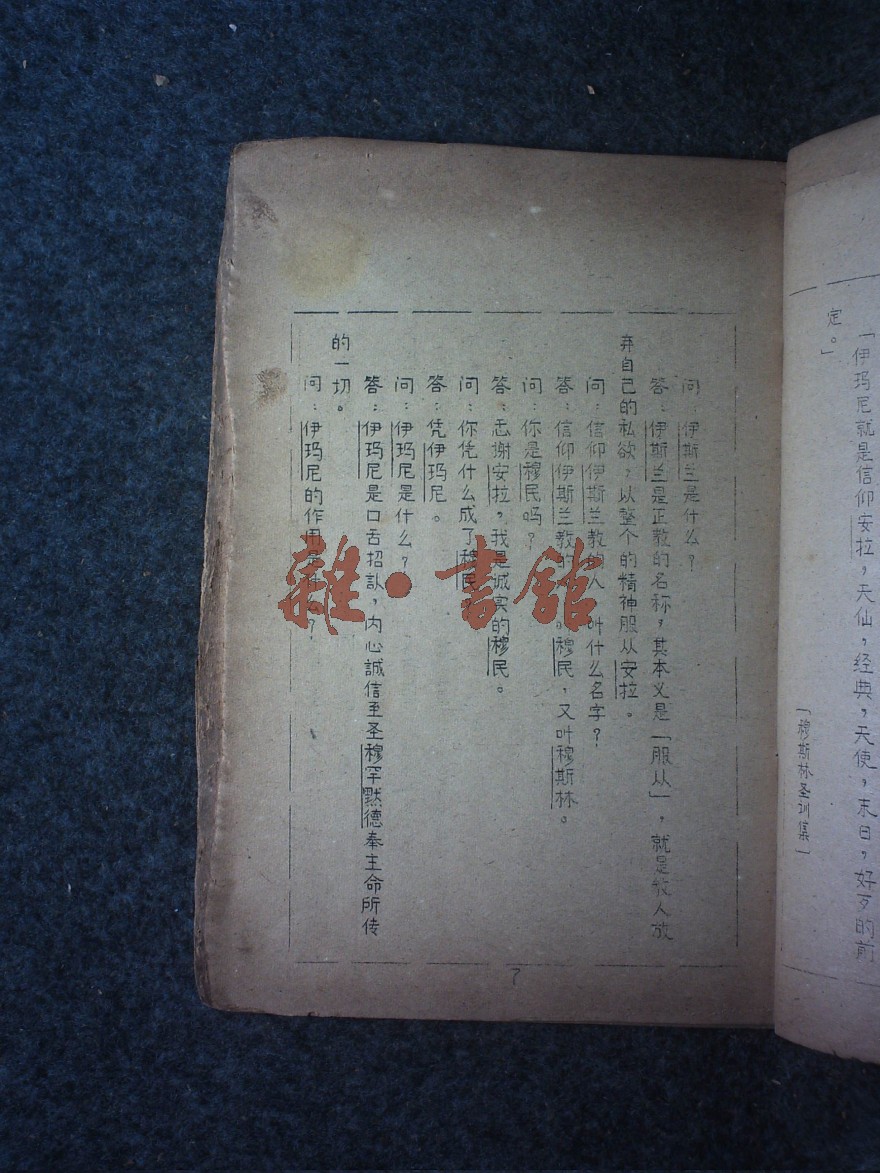 「伊玛尼就是信仰安拉，天仙，经典，天使，末日，好歹的前
定。」
「穆斯林圣训集」
问：伊斯兰是什么？
答：伊斯兰是正教的名称，其本义是「服从」，就是教人放
弃自己的私欲，以整个的精神服从安拉。
问：信仰伊斯兰教的人，叫什么名字？
答：信仰伊斯兰教的 穆民，又叫穆斯林。
问：你是穆民吗？
答：感谢安拉，我是诚实的穆民。
问：你凭什么成了穆民？
答：凭伊玛尼。
问：伊玛尼是什么？
答：伊玛尼是口舌招认，内心誠信至圣穆罕默德奉主命所传
的一切。
问：伊玛尼的作用是什么？
7
雜·書館